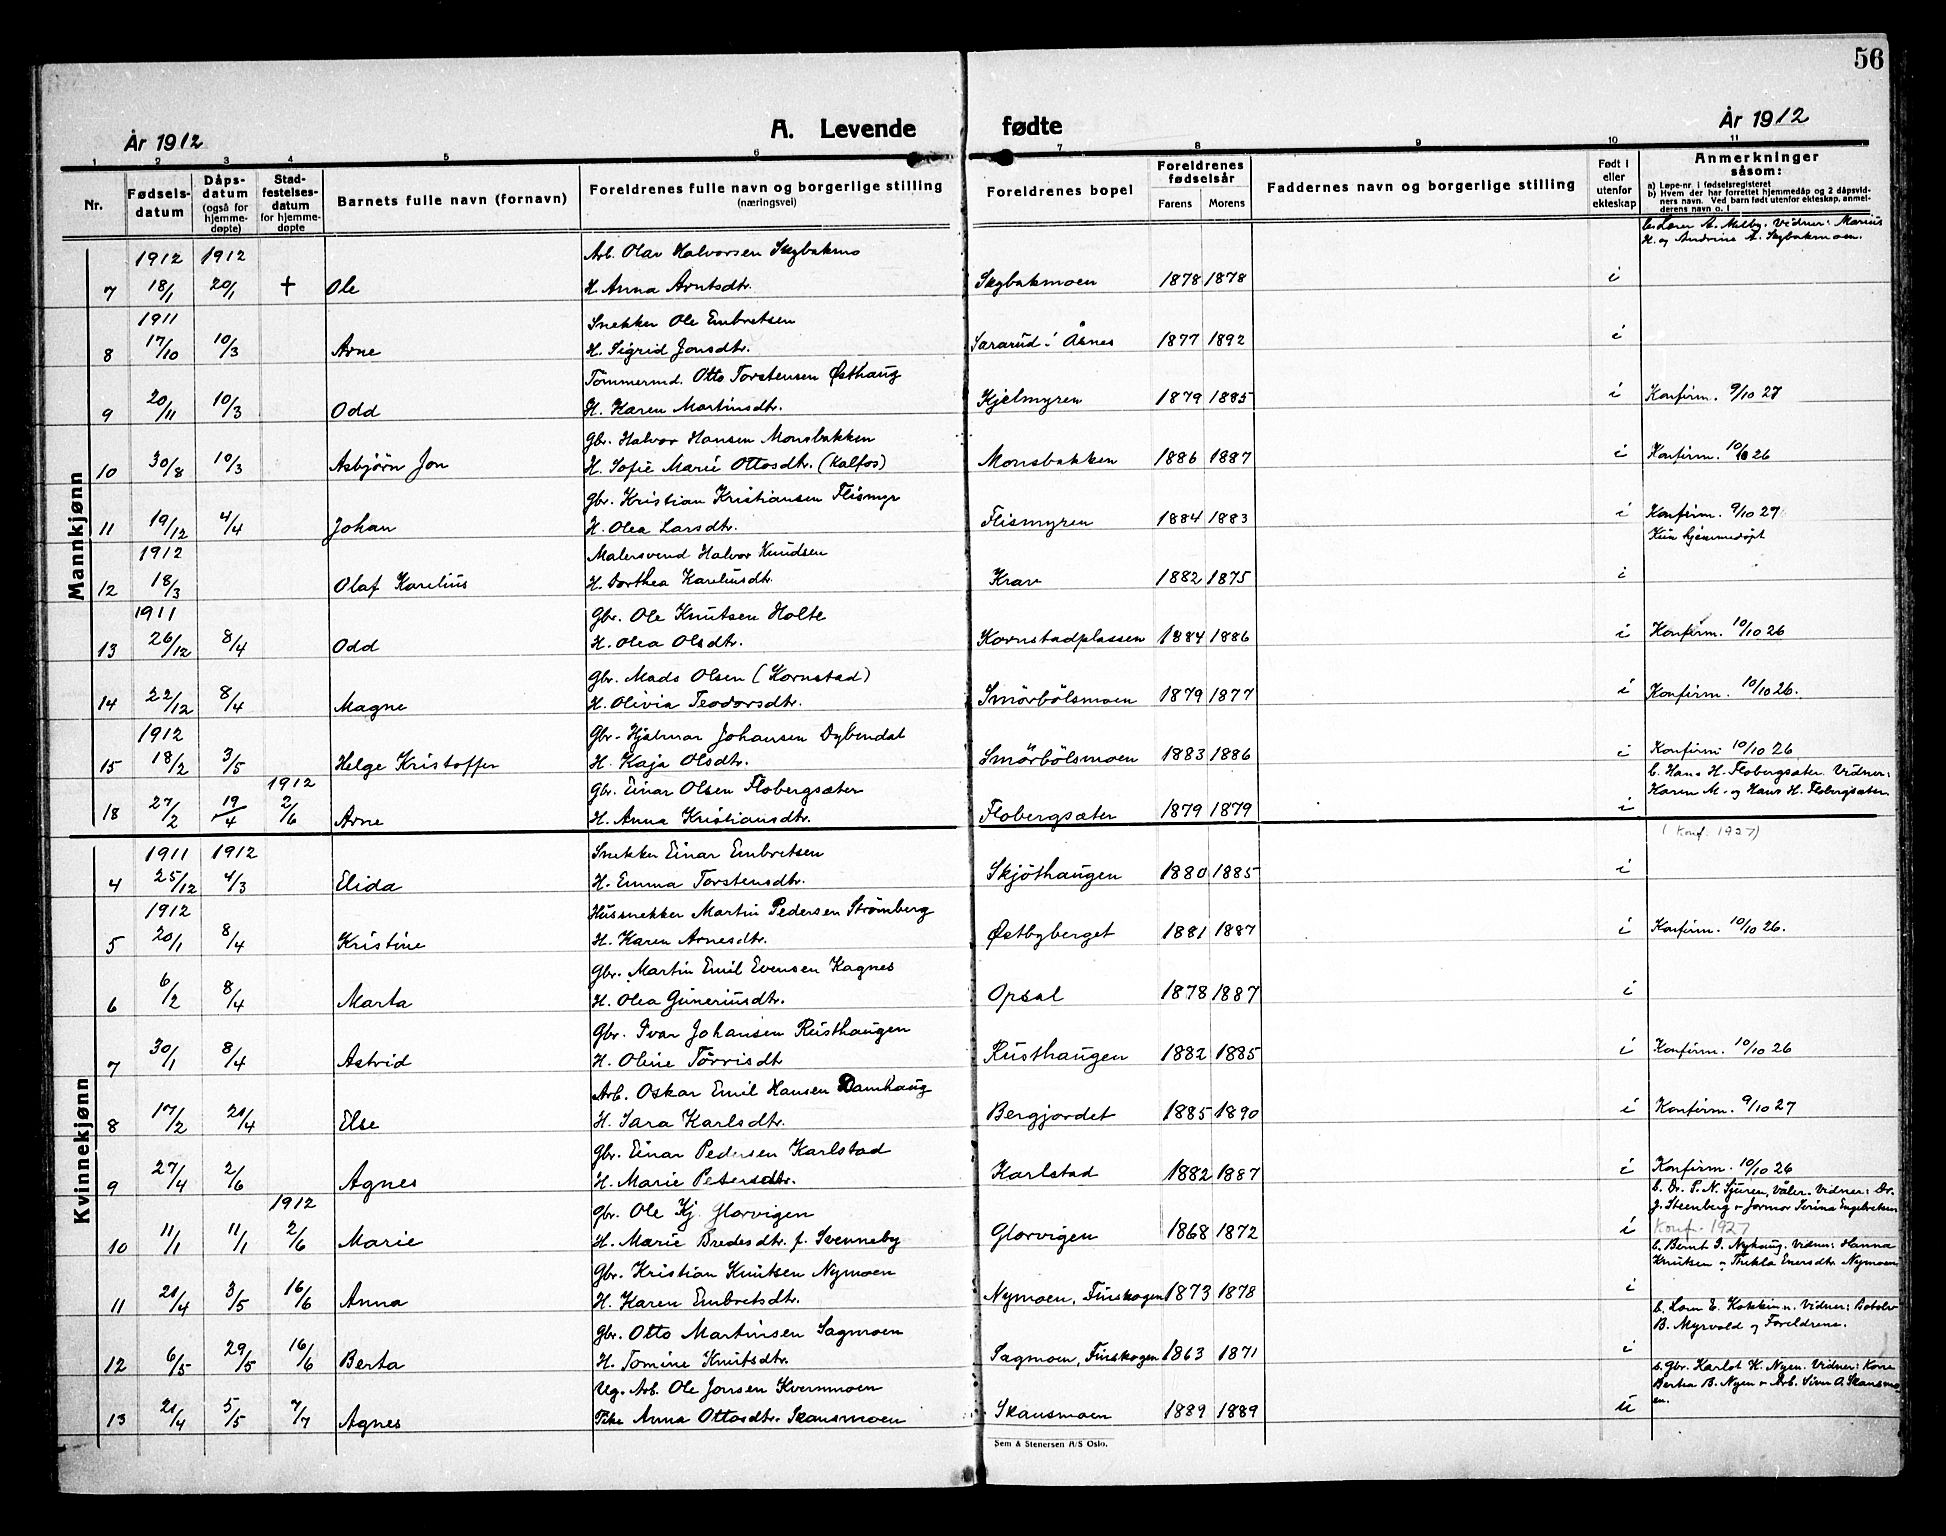 56
År 1912 A. Levende fødte År 1912
1 2 3 4 5 6 7 8 9 10 11
Nr. Fødselsdatum Dåpsdatum (også for hjemmedøpte) Stadfestelsesdatum for hjemmedøpte Barnets fulle navn (fornavn) Foreldrenes fulle navn og borgerlige stilling (næringsvei) Foreldrenes bopel Foreldrenes fødselsår Farens Morens Faddernes navn og stilling Født i eller utenfor ekteskap Anmerkninger såsom:
a) Løpe-nr. i fødselsregisteret
b) Hvem der har forrettet hjemmedåp og 2 dåpsvidners navn. Ved barn født utenfor ekteskap, anmelderens navn o. l
Mannkjønn
1912 1912 Arb. Olav Halvorsen Skybakmo b. Lærer A. Melby. Vidner: Marius
H. og Andrine A. Skybakmoen.
7 18/1 20/1 + Ole H. Anna Arntsdtr. Skybakmoen 1878 1878 i
1911 Snekker Ole Embretsen
8 17/10 10/3 Arne H. Sigrid Jonsdtr. Sararud i Åsnes 1877 1892 i
Tømmermd. Otto Torstensen Østhaug
9 20/11 10/3 Odd H. Karen Martinsdtr. Kjelmyren 1879 1885 i Konfirm. 9/10 27
Gbr. Halvor Hansen Monsbakken
10 30/8 10/3 Asbjørn Jon H. Sofie Marie Ottosdtr. (Kalfos) Monsbakken 1886 1887 i Konfirm. 10/10 26
Gbr. Kristian Kristiansen Flismyr
11 19/12 4/4 Johan H. Olea Larsdtr. Flismyren 1884 1883 i Konfirm. 9/10 27
1912 Malersvend Halvor Knudsen Kun hjemmedøpt
12 18/3 Olaf Karelius H. Dorthea Kareliusdt. Krav 1882 1875 i
1911 Gbr. Ole Knutsen Holte
13 26/12 8/4 Odd H. Olea Olsdtr. Kornstadplassen 1884 1886 i Konfirm. 10/10 26
Gbr. Mads Olsen (Kornstad)
14 22/12 8/4 Magne H. Olivia Teodorsdtr. Smörbölsmoen 1879 1877 i Konfirm. 10/10 26.
1912 Gbr. Hjalmar Johansen Dybendal
15 18/2 3/5 Helge Kristoffer H. Kaja Olsdtr. Smörbölsmoen 1883 1886 i Konfirm 10/10 26
1912 Gbr. Einar Olsen Flobergsæter b. Hans H. Flobergsæter. Vidner:
Karen M. og Hans H. Flobergsæter.
18 27/2 19/4 2/6 Arne H. Anna Kristiansdtr. Flobergsæter 1879 1879 i
(Konf. 1927)
Kvinnekjønn
1911 1912 Snekker Einar Embretsen
4 25/12 4/3 Elida H. Emma Torstensdtr. Skjöthaugen 1880 1885 i
1912 Hussnekker Martin Pedersen Strømberg
5 20/1 8/4 Kristine H. Karen Arnesdtr. Østbyberget 1881 1887 i Konfirm. 10/10 26.
Gbr. Martin Emil Evensen Kagnes
6 6/2 8/4 Marta H. Olea Guneriusdtr. Opsal 1878 1887 i
Gbr. Ivar Johansen Rusthaugen
7 30/1 8/4 Astrid H. Oline Tørrisdt Rusthaugen 1882 1885 i Konfirm. 10/10 26
Arb. Oskar Emil Hansen Damhaug
8 17/2 21/4 Else H. Sara Karlsdtr. Bergjordet 1885 1890 i Konfirm. 9/10 27
Gbr. Einar Pedersen Karlstad
9 27/4 2/6 Agnes H. Marie Petersdtr. Karlstad 1882 1887 i Konfirm. 10/10 26
1912 Gbr. Ole Kj. Glorvigen b. Dr. P. N. Sjuren, Våler. Vidner: Dr.
J. Steenberg & Jormor Terina Engebretsen
10 11/1 11/1 2/6 Marie H. Marie Bredesdtr. f. Svenneby Glorvigen 1868 1872 i Konf. 1927
Gbr. Kristian Knutsen Nymoen b. Bernt J. Nyhaug. Vidner: Hanna
Knutsen & Thekla Enersdtr Nymoen
11 21/4 3/5 16/6 Anna H. Karen Embretsdtr. Nymoen, Finskogen 1873 1878 i
Gbr. Otto Martinsen Sagmoen b. Lars E. Kokkinn. Vidner:
B. Myrvold og Foreldrene.
12 6/5 29/5 16/6 Berta H. Tomine Knutsdtr. Sagmoen, Finskogen 1863 1871 i
Ug. Arb. Ole Jonsen Kvernmoen b. Gbr. Karlot H. Nyen. Vidner: Kone
Bertea B. Nyen & Arb. Siver A. Skansmoen.
13 21/4 5/5 7/7 Agnes Pike Anna Ottosdtr. Skansmoen Skansmoen 1889 1889 u
Sem & Stenersen A/S Oslo.